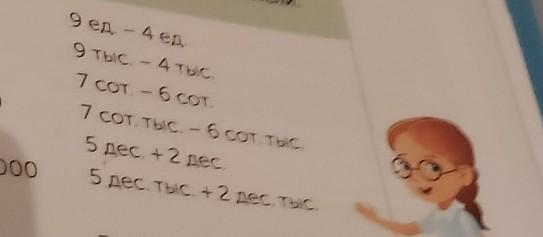 9 ед. – 4 ед.
9 тыс. – 4 тыс.
7 сот. – 6 сот.
7 сот. тыс. – 6 сот. тыс.
5 дес. + 2 дес.
000
5 дес. тыс. + 2 дес. тыс.